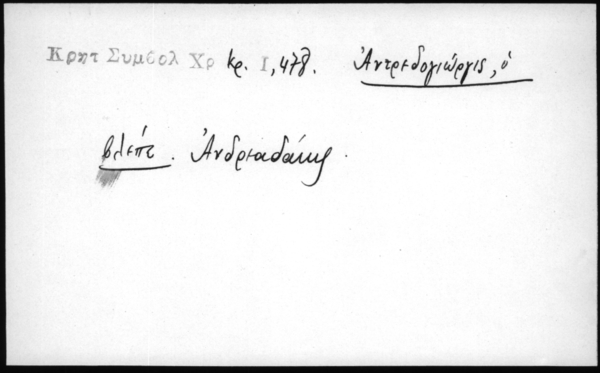 Κρητ Συμβολ Χρ κρ. Ι, 478. Ἀντρεδογιώργις, ὁ
βλέπε. Ἀνδρεαδάκης.